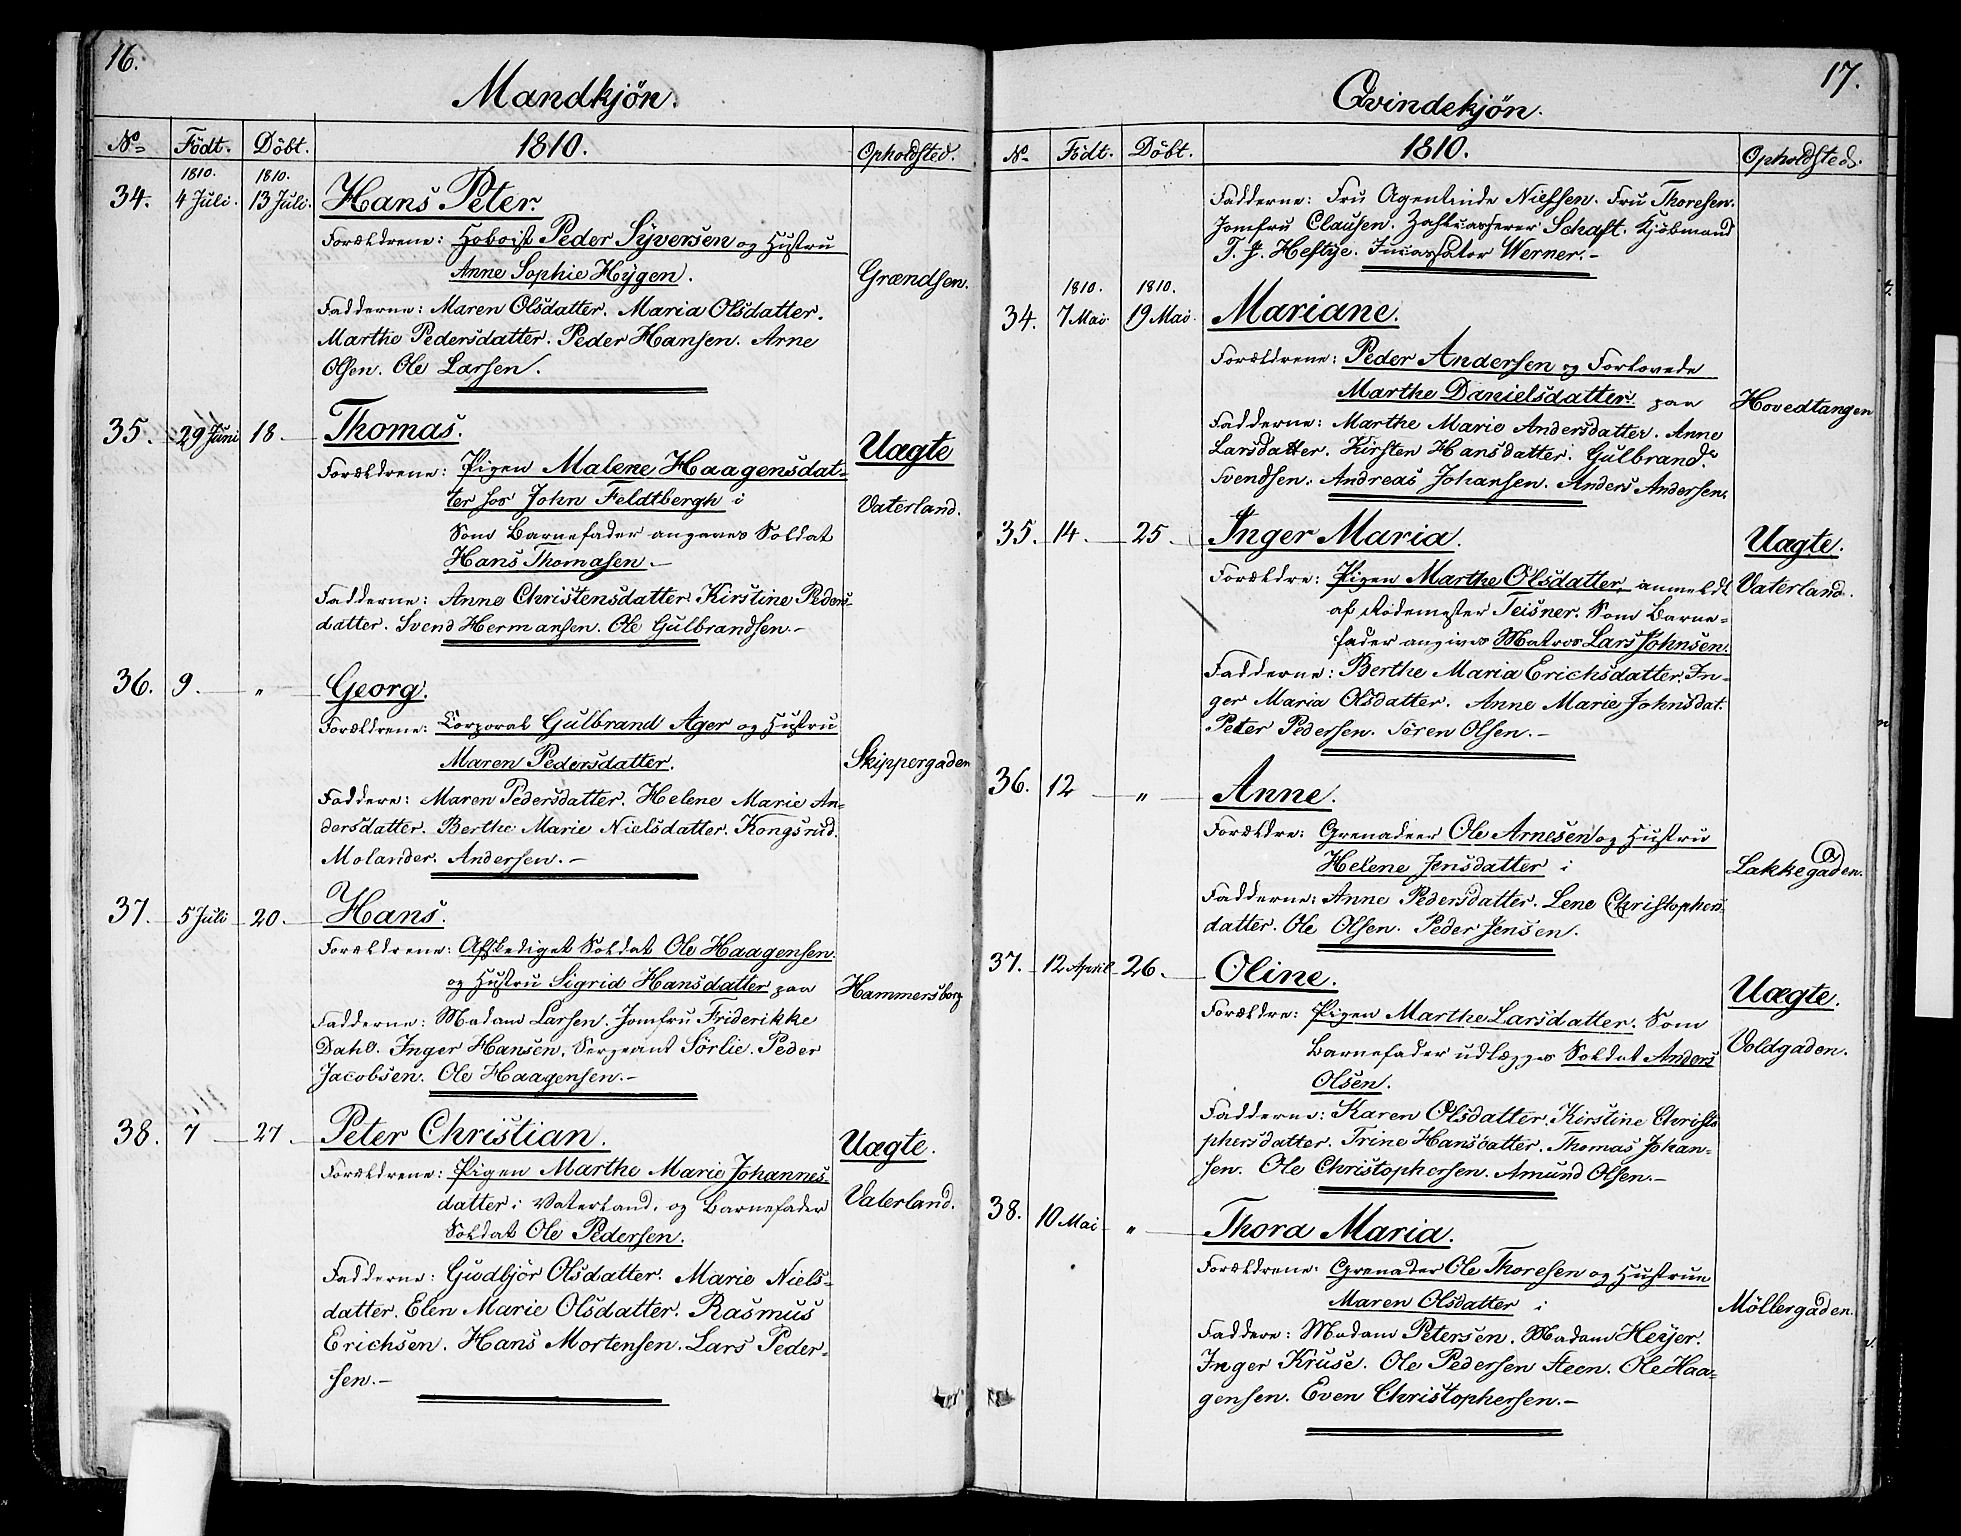 16.
Mandkjön.
No Födt. Döbt. 1810. Opholdsted.
1810. 1810.
34. 4 Juli. 13 Juli. Hans Peter.
Forældrene: Hoboist Peder Syversen og Hustru
Anne Sophie Hygen. Grændsen.
Fadderne: Maren Olsdatter. Maria Olsdatter.
Marthe Pedersdatter. Peder Hansen. Arne
Olsen. Ole Larsen.
35. 29 Juni 18. Thomas. Uægte
Forældrene: Pigen Malene Haagensdat-
ter hos John Feldtbergh i Vaterland.
Som Barnefader angives Soldat
Hans Thomasen.-
Fadderne: Anne Christensdatter. Kirstine Peders-
datter. Svend Hermansen. Ole Gulbrandsen.-
36. 9. " Georg.
Forældrene: Corporal Gulbrand Ager og Hustru
Maren Pedersdatter. Skippergaden
Faddere: Maren Pedersdatter. Helene Marie An-
dersdatter. Berthe Marie Nielsdatter. Kongsrud.
Molander. Andersen.-
37. 5 Juli 20. Hans.
Forældrene: Afskediget Soldat Ole Haagensen
og Hustru Sigrid Hansdatter paa Hammersborg
Fadderne: Madam Larsen. Jomfru Friderikke
Dahl. Inger Hansen. Sergeant Sörlie. Peder
Jacobsen. Ole Haagensen.-
38. 7 27. Peter Christian. Uægte.
Forældrene: Pigen Marthe Marie Johannes-
datter i Vaterland, og Barnefader Vaterland.
Soldat Ole Pedersen.
Fadderne: Gudbjör Olsdatter. Marie Niels-
datter. Elen Marie Olsdatter. Rasmus
Erichsen. Hans Mortensen. Lars Peder-
sen.-
17.
Qvindekjön.
No Födt. Döbt. 1810. Opholdsted.
Fadderne: Fru Agentinde Nielsen. Fru Thoresen.
Jomfru Clausen. Zahlkasserer Schaft. Kjöbmand
T. J. Heftye. Incassator Werner.-
1810. 1810.
34. 7 Mai. 19 Mai. Mariane.
Forældrene: Peder Andersen og Forlovede
Marthe Danielsdatter. paa Hovedtangen
Fadderne: Marthe Marie Andersdatter. Anne
Larsdatter. Kirsten Hansdatter. Gulbrand
Svendsen. Andreas Johansen. Anders Andersen.
35. 14. 25. Inger Maria. Uægte.
Forældre: Pigen Marthe Olsdatter, anmeldt Vaterland.
af Rodemester Teisner. Som Barne-
fader angives Matros Lars Johnsen.
Fadderne: Berthe Maria Erichsdatter. In-
ger Maria Olsdatter. Anne Marie Johnsdat.
Peter Pedersen. Sören Olsen.-
36. 12 " Anne.
Forældre: Grenadeer Ole Arnesen og Hustru
Helene Jensdatter i Lakkegaden.
Fadderne: Anne Pedersdatter. Lene Christophers-
datter. Ole Olsen. Peder Jensen.
37. 12 April 26. Oline. Uægte.
Forældre: Pigen Marthe Larsdatter. Som
Barnefader udlægges Soldat Anders Voldgaden.
Olsen.
Fadderne: Karen Olsdatter. Kirstine Christo
phersdatter. Trine Hansdatter. Thomas Johan-
sen. Ole Christophersen. Amund Olsen.-
38. 10 Mai " Thora Maria.
Forældrene: Grenader Ole Thoresen og Hustrue
Maren Olsdatter i Möllergaden.
Faddere: Madam Petersen. Madam Heyer.
Inger Kruse. Ole Pedersen Steen. Ole Haa-
gensen. Even Christophersen.-